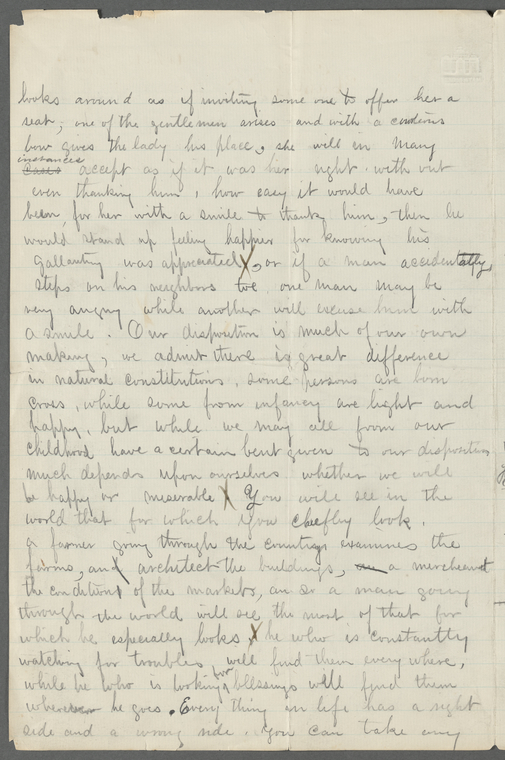 looks around as if inviting some one to offer her a
seat; one of the gentlemen arises and with a courteous
bow gives the lady his place, she will in many
instances
cases accept as if it was her right. with out
even thanking him, how easy it would have
been, for her with a smile to thank him, then he
would stand up feeling happier for knowing his
gallantry was appreciated X, or if a man accidentally
steps on his neighbors toe one man may be
very angry while another will excuse him with
a smile. Our disposition is much of our own
making, we admit there is great difference
in natural constitutions, some persons are born
cross, while some from infancy are light and
happy, but while we may all from our
childhood have a certain bent given to our disposition
much depends upon ourselves whether we will
be happy or miserable X You will see in the
world that for which you chiefly look.
a farmer going through the country examines the
farms, an architect the buildings, an a merchant
the conditions of the markets, an so a man going
through the world will see the most of that for
which he especially looks X he who is constantly
watching for troubles will find them every where,
for
while he who is looking blessings will find them
where he goes. Every thing in life has a right
side and a wrong side. You can take any